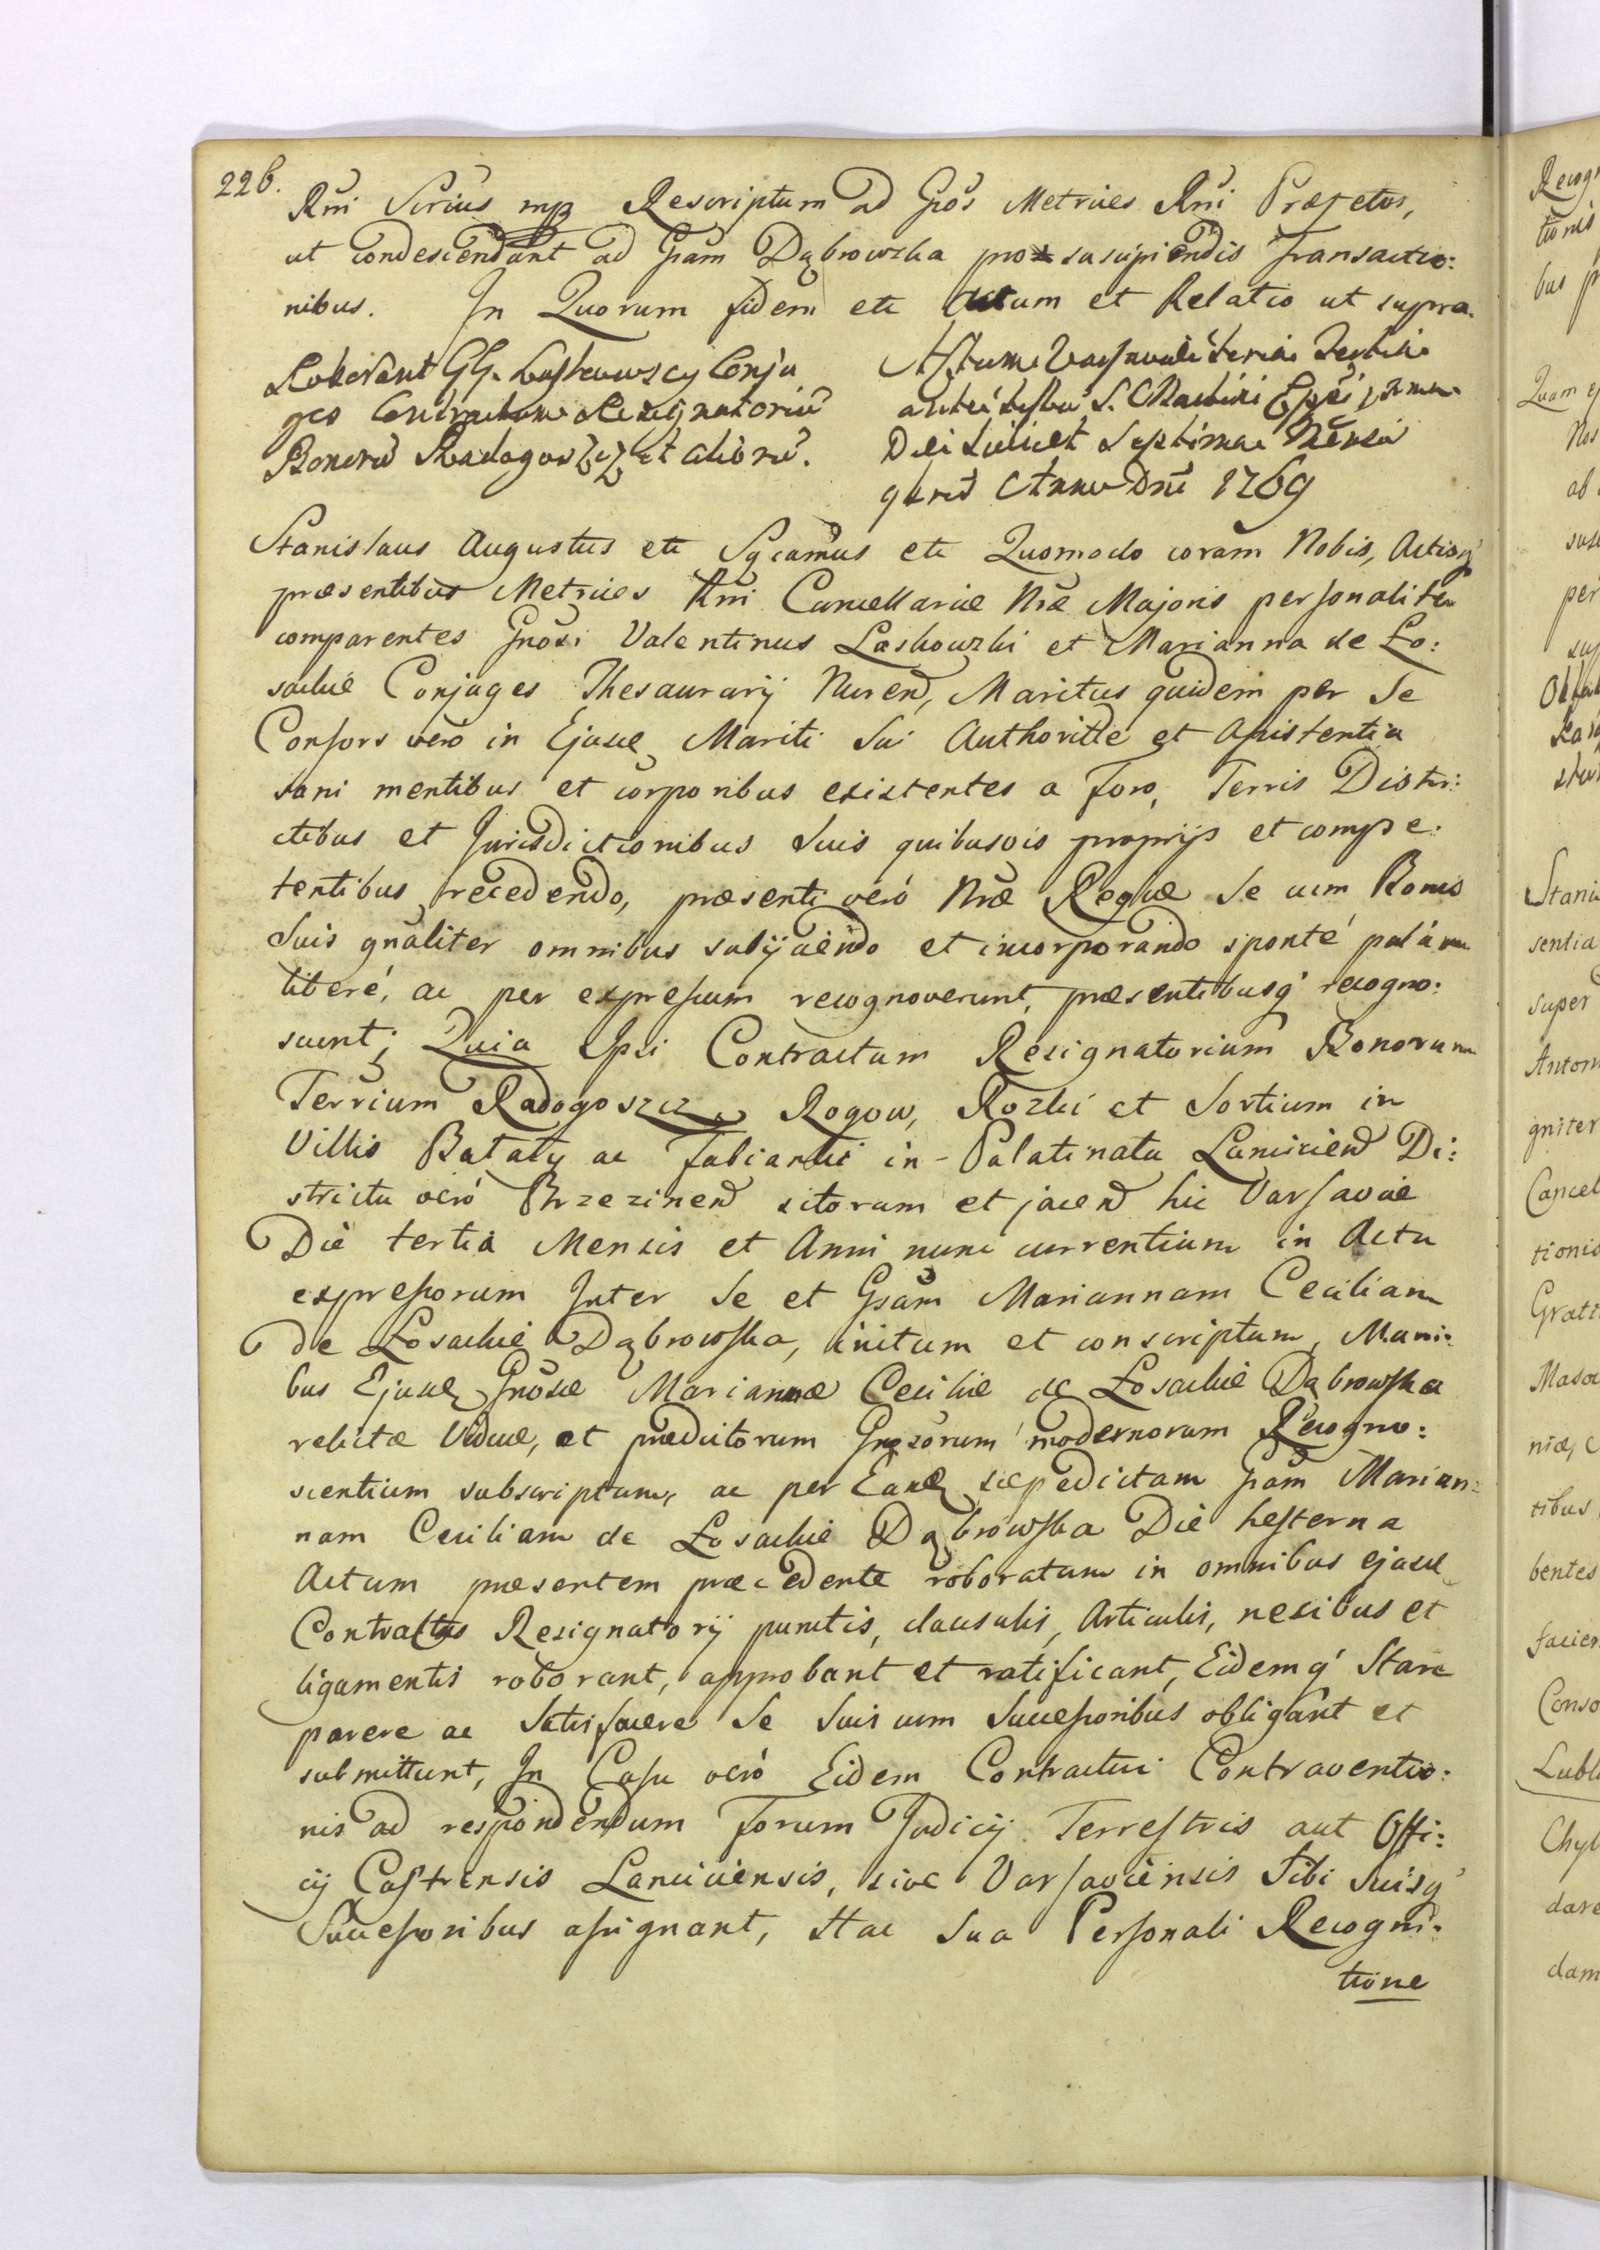 226.
Rni Scrius mpp Rescriptum ad Gsos Metrices Rni Præfetos,
ut condescendant ad Gsam Dąbrowska pro susupiendis Transactio:
nibus. In Quorum fidem etc Actum et Relatio ut supra.
Roborant GG. Laskowscy Conju
ges Contractum Resignatoriu
Bonoru Radogoszcz et alioru.
Actum Varsaviæ feria tertia
ante festu S. Martini Eppi
Die scilicet Septima Mensis
9bris Anno Dni 1769
Stanislaus Augustus etc Sgcamus etc Quomodo coram Nobis, Actisq
præsentibus Metrices Rni Cancellariæ Nræ Majoris personaliter
comparentes Gnosi Valentinus Laskowzki et Marianna de Ło:
sackie Conjuges Thesaurarij Nurend, Maritus quidem per Se
Consors vero in Ejusde Mariti Sui Authoritte et Assistentia
sani mentibus et corporibus existentes a Foro, Terris Distri:
ctibus et Jurisdictionibus Suis quibusvis proprijs et compe:
tentibus recedendo, præsenti veró Nræ Regiæ Se cum Bonis
Suis gnaliter omnibus subijciendo et incorporando sponté palám
liberé, ac per expressum recognoverunt, præsentibusq recogno:
scunt; Quia Ipsi Contractum Resignatorium Bonorum
Terrium Radogoszcz, Rogow, Rozki et Sortium in
Villis Bałaty ac Fabianki in Palatinatu Lancicien Di:
strictu veró Brzezinen sitorum et jacen hic Varsaviæ
Die tertia Mensis et Anni nunc currentium in Actu
expressorum Inter Se et Gsam Mariannam Ceciliam
De Łosackie Dąbrowska, initum et conscriptum, Mani:
bus Ejusde Gnosæ Mariannæ Ceciliæ de Łosackie Dąbrowska
relictæ Viduæ, et prædictorum Gnosorum modernorum Recogno:
scientium subscriptum, ac per Eande sæpedictam Gsam Marian:
nam Ceciliam de Łosackie Dąbrowska Die hesterna
Actum præsentem præcedente roboratum in omnibus ejusde
Contractus Resignatorij punctis, clausulis, Articulis, nexibus et
ligamentis roborant, approbant et ratificant, Eidemq Stare
parere ac Satisfacere Se Suis cum Successoribus obligant et
submittunt, In Casu veró Eidem Contractui Contraventio:
nis ad respondendum Forum Judicij Terrestris aut Offi:
cij Castrensis Lanciciensis, sive Varsaviensis Sibi Suisq
Successoribus assignant, Hac Sua Personali Recogni:
tione